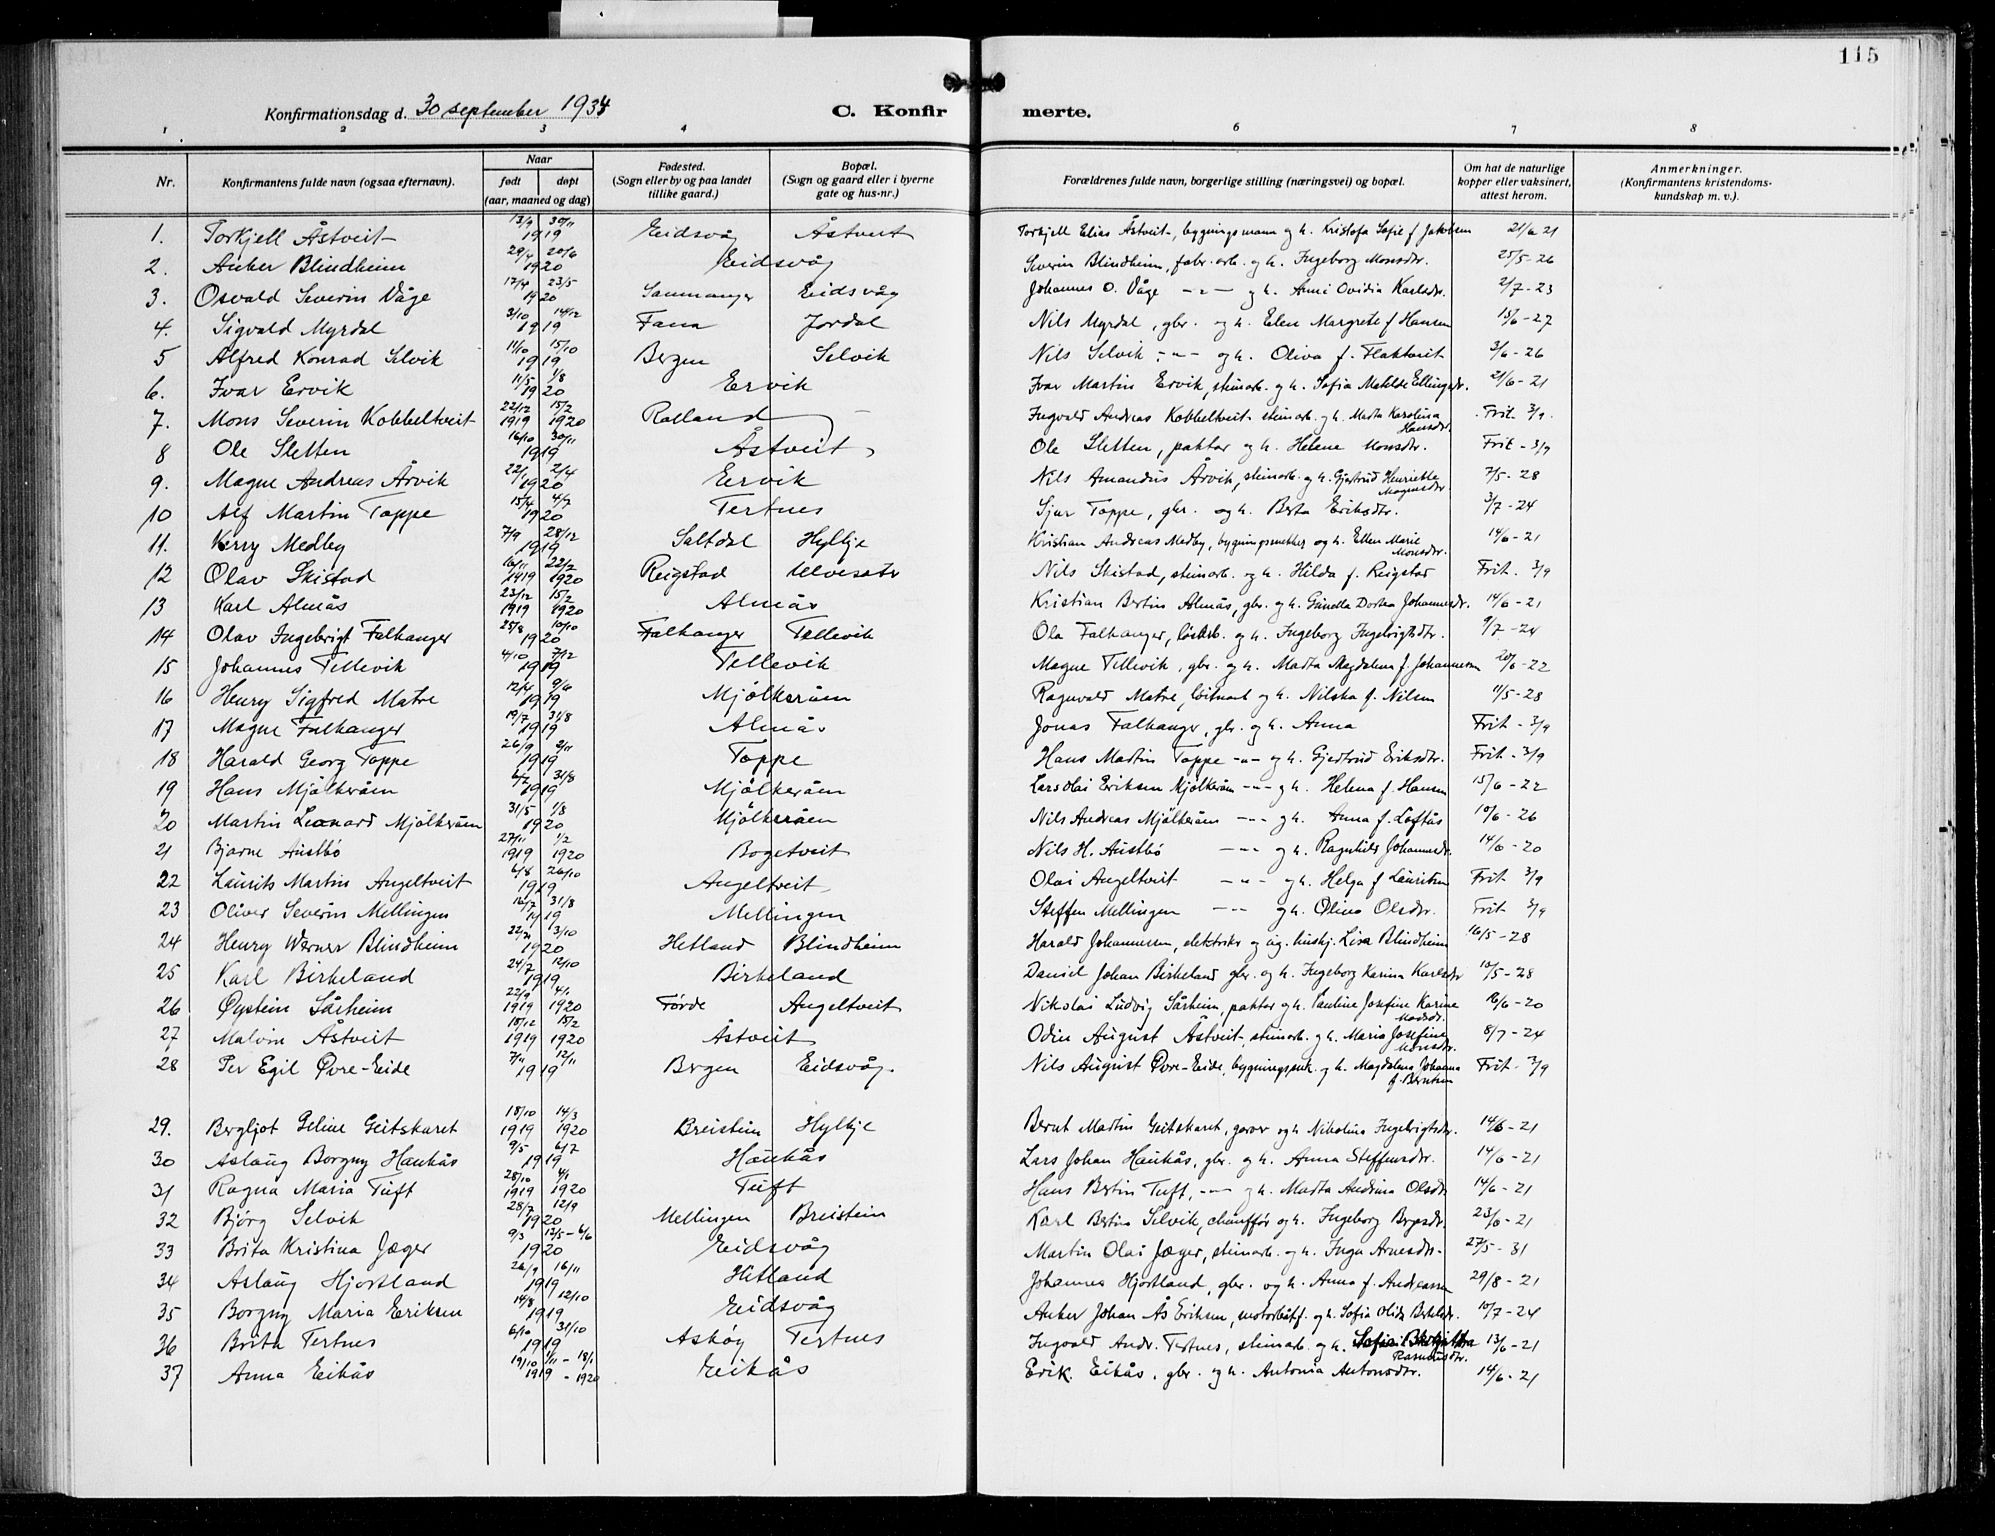 115
Konfirmationsdag d. 30 september 1934 C. Konfirmerte.
1 2 3 4 6 7 8
Nr. Konfirmantens fulde navn (ogsaa efternavn). Naar født døpt (aar, maaned og dag) Fødested. (Sogn eller by og paa landet tillike gaard.) Bopæl. (Sogn og gaard eller i byerne gate og hus-nr.) Forældrenes fulde navn, borgerlige stilling (næringsvei) og bopæl. Om hat de naturlige kopper eller vaksinert, attest herom. Anmerkninger. (Konfirmantens kristendomskundskap m. v.).
1. Torkjell Åstveit 13/9 30/11 1919 Eidsvåg Åstveit Torkjell Elias Åstveit, bygningsmann og h. Kristofa Sofie f. Jakobsen 21/6 21
2. Anker Blindheim 29/4 20/6 1920 Eidsvåg Severin Blindheim, fabr. arb. og h. Ingeborg Monsdtr. 25/5-26
3. Osvald Severin Våge 17/4 23/5 1920 Samnanger Eidsvåg Johannes O. Våge -"- og h. Anni Ovidia Karlsdtr. 2/7-23
4. Sigvald Myrdal 3/10 14/12 1919 Fana Jordal Nils Myrdal, gbr. og h. Elen Margrete f. Hansen 15/6-27
5 Alfred Konrad Selvik 11/10 15/10 1919 Bergen Selvik Nils Selvik -"- og h. Oliva f. Flaktveit 3/6-26
6. Ivar Ervik 11/5 1/8 1920 Ervik Ivar Martin Ervik, steinarb. og h. Sofia Matilde Ellingsdtr. 21/6-21
7. Mons Severin Kobbeltveit 22/12 15/2 1919 1920 Rolland Ingvald Andreas Kobbeltveit steinarb. og h. Marta Karolina Hansdtr. Frit 3/9.
8 Ole Sletten 16/10 30/11 1919 Åstveit Ole Sletten, paktar og h. Helene Monsdtr. Frit - 3/9
9. Magne Andreas Årvik 22/1 2/4 1920 Ervik Nils Amandus Årvik, steinarb. og h. Gjertrud Henriette Magnusdtr. 7/5-28
10 Alf Martin Toppe 15/4 4/7 1920 Tertnes Sjur Toppe, gbr. og h. Berta Eriksdtr. 3/7-24
11. Kerry Medby 7/9 28/12 1919 Saltdal Hylkje Kristian Andreas Medby, bygningssnekker og h. Ellen Marie Monsdtr. 14/6-21
12 Olav Skistad 16/11 22/2 1919 1920 Reigstad Ulvesetr Nils Skistad, steinarb. og h. Hilda f. Reigstad Frit. 3/9
13 Karl Almås 23/12 15/2 1919 1920 Almås Kristian Bertin Almås, gbr. og h. Gunella Dortea Johannesdtr. 14/6-21
14 Olav Ingebrigt Falkanger 25/8 10/10 1920 Falkanger Tellevik Ola Falkanger, løsarb. og h. Ingeborg Ingebrigtsdtr. 9/7-24
15 Johannes Tellevik 4/10 7/12 1919 Tellevik Magne Tellevik, gbr. og h. Marta Magdalena f. Johannesen 20/6-22
16 Henry Sigfred Matre 12/4 9/6 1919 Mjølkeråen Ragnvald Matre, løitnant og h. Nilska f. Nilsen 11/5-28
17 Magne Falkanger 19/7 31/8 1919 Almås Jonas Falkanger, gbr. og h. Anna Frit - 3/9
18 Harald Georg Toppe 26/9 2/11 1919 Toppe Hans Martin Toppe -"- og h. Gjertrud Eriksdtr. Frit - 3/9
19 Hans Mjølkeråen 6/7 31/8 1919 Mjølkeråen Lars Olai Eriksen Mjølkeråen -"- og h. Helena f. Hansen 15/6-22
20 Martin Leonard Mjølkeråen 31/5 1/8 1920 Mjølkeråen Nils Andreas Mjølkeråen -"- og h. Anna f. Loftås 10/6-26
21 Bjarne Austbø 27/11 1/2 1919 1920 Bogetveit Nils H. Austbø -"- og h. Ragnhild Johannesdtr. 14/6-20
22 Laurits Martin Angeltveit 6/8 26/10 1919 Angeltveit Olai Angeltveit -"- og h. Helga f. Lauritsen Frit 3/9
23 Oliver Severin Mellingen 16/7 31/8 1919 Mellingen Steffen Mellingen -"- og h. Olina Olsdtr. Frit 3/9
24 Henry Werner Blindheim 3/10 1920 Hetland Blindheim Harald Johannesen, elektriker og ug. huskj. Lisa Blindheim 16/5-28
25 Karl Birkeland 24/7 12/10 1919 Birkeland Daniel Johan Birkeland gbr. og h. Ingeborg Karina Karlsdtr 10/5-28
26 Øystein Sårheim 22/9 4/1 1919 1920 Førde Angeltveit Nikolai Ludvig Sårheim, paktar og h. Pauline Josefine Karine Madsdtr. 16/6-20
27 Malvin Åstveit 18/12 15/2 1919 1920 Åstveit Odin August Åstveit, steinarb. og h. Maria Josefine Monsdtr. 8/7-24
28 Per Egil Øvre-Eide 7/11 12/11 1919 Bergen Eidsvåg. Nils August Øvre-Eide, bygningssnk. og h. Magdalena Johanna f. Berntsen Frit - 3/9
29. Bergljot Geline Geitskaret 18/10 14/3 1919 1920 Breistein Hylkje Bernt Martin Geitskaret, garver og h. Nikolina Ingebrigtsdtr. 14/6-21
30 Aslaug Borgny Haukås 9/5 6/7 1919 Haukås Lars Johan Haukås, gbr. og h. Anna Steffensdtr. 14/6-21
31 Ragna Maria Tuft 28/10 4/1 1919 1920 Tuft Hans Bertin Tuft, -"- og h. Marta Andrina Olsdtr 14/6-21
32 Bjørg Selvik 28/7 12/9 1920 Mellingen Breistein Karl Bertin Selvik, chauffør og h. Ingeborg Brynsdtr. 23/6-21
33 Brita Kristina Jæger 9/3 12/5-6/6 1920 Eidsvåg Martin Olai Jæger, steinarb. og h. Inga Arnesdtr. 27/5-31
34 Aslaug Hjortland 26/9 16/11 1919 Hetland Johannes Hjortland, gbr. og h. Anna f. Andreassen 29/8-21
35 Borgny Maria Eriksen 14/8 12/10 1919 Eidsvåg Anker Johan Ås Eriksen, motorbåtf. og h. Sofia Olida 10/7-24
36 Brita Tertnes 6/10 31/10 1919 Askøy Tertnes Ingvald Andr. Tertnes, steinarb. og h. Rasmusdtr. 13/6-21
37 Anna Eikås 19/10 1/11-18/1 1919-1920 Eikås Erik Eikås, gbr. og h. Antonia Antonsdtr. 14/6-21